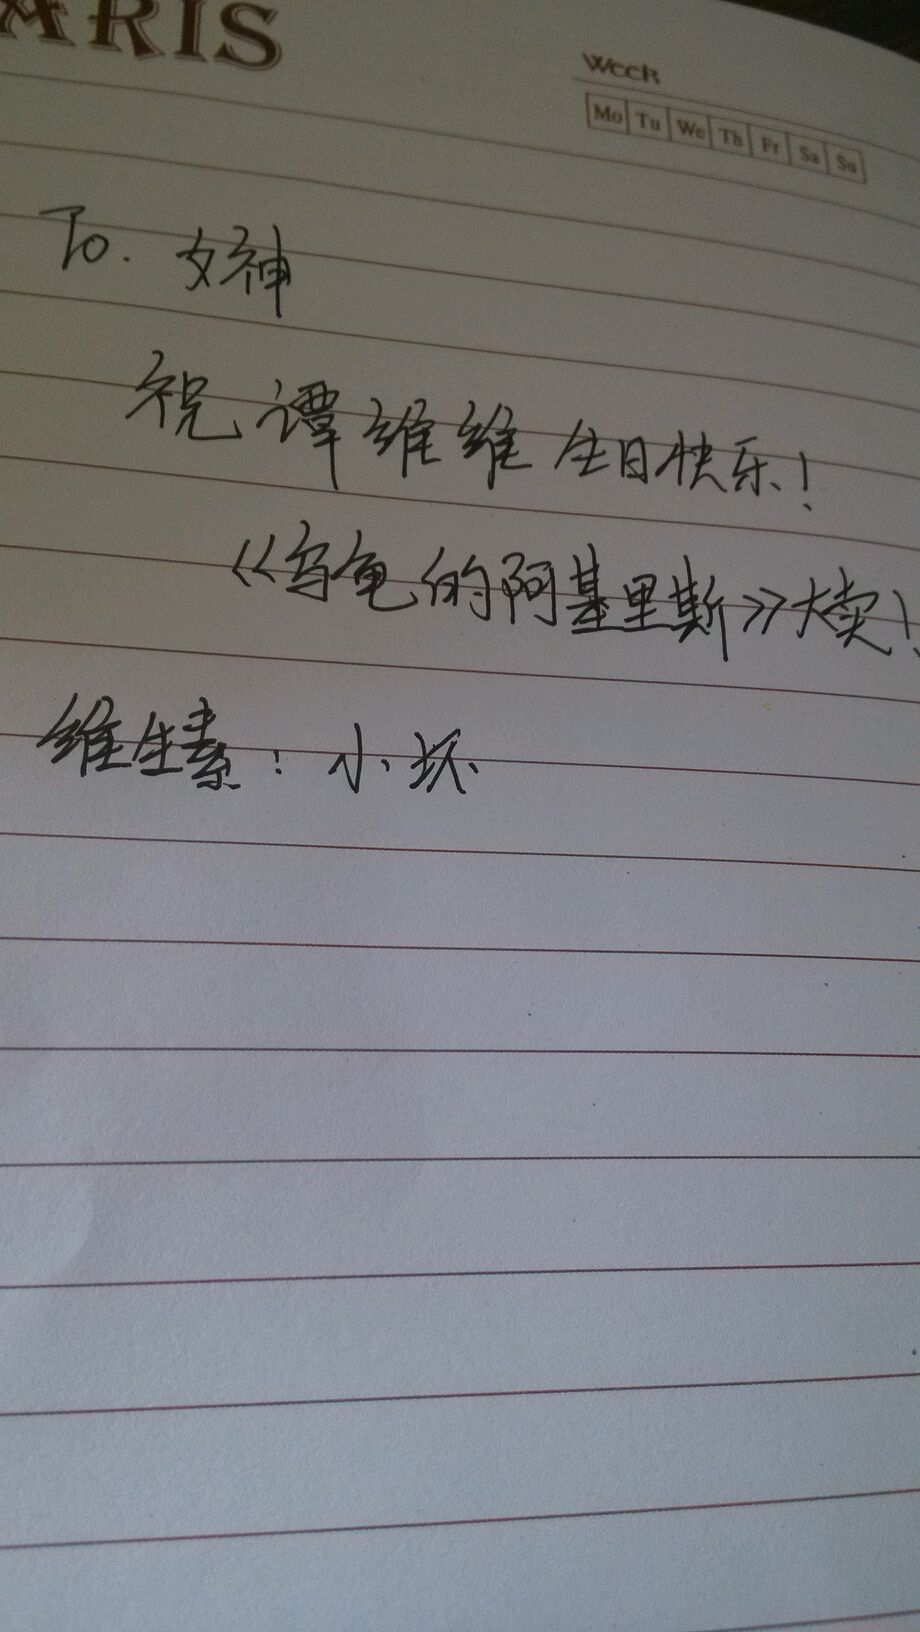 ARIS
WEEK
Mo Tu We Th Fr Sa Su
To. 女神
祝谭维维生日快乐!
《乌龟的阿基里斯》大卖!
维生素:小坏